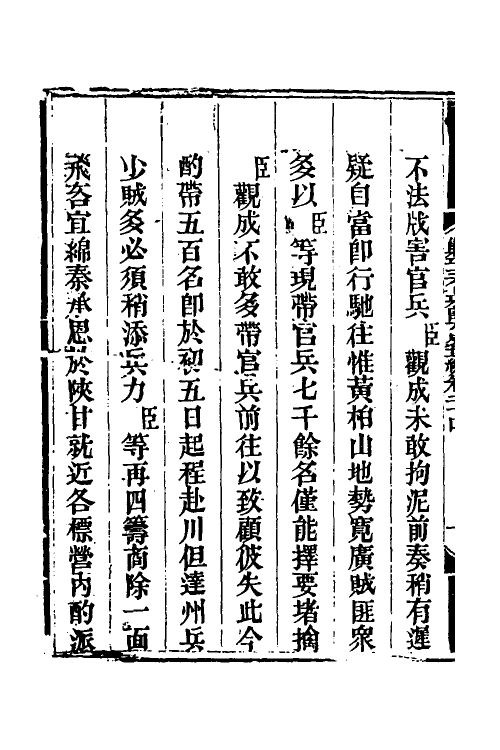 不法戕害官兵臣觀成未敢拘泥前奏稍有遲
疑自當卽行馳往惟黃柏山地勢寬廣賊匪衆
多以臣等現帶官兵七千餘名僅能擇要堵擒
臣觀成不敢多帶官兵前往以致顧彼失此今
酌帶五百名卽於初五日起程赴川但達州兵
少賊多必須稍添兵力臣等再四籌商除一面
飛咨宜綿秦承恩於陝甘就近各標營內酌派